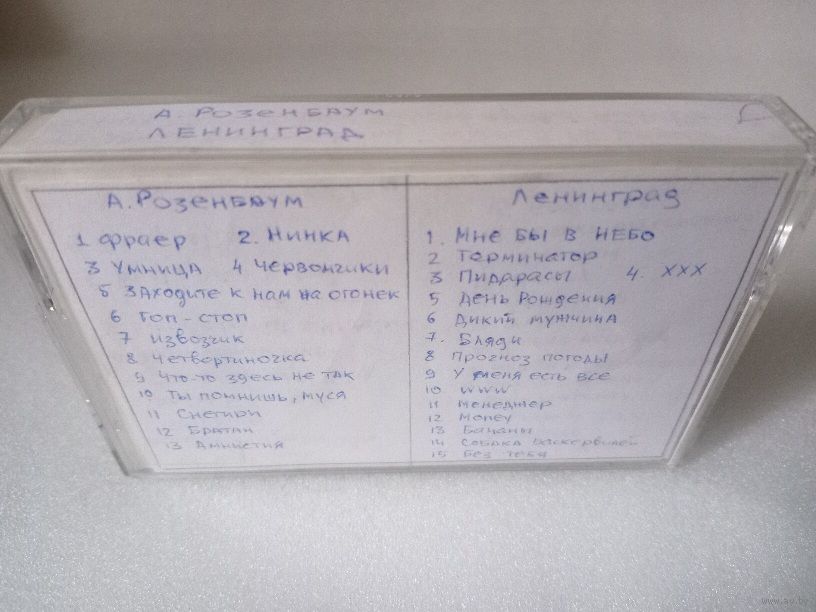 А. РОЗЕНБАУМ
ЛЕНИНГРАД
А. РОЗЕНБАУМ
1 ФРАЕР 2. НИНКА
3 УМНИЦА 4 ЧЕРВОНЧИКИ
5 ЗАХОДИТЕ К НАМ НА ОГОНЕК
6 ГОП-СТОП
7 ИЗВОЗЧИК
8 ЧЕТВЕРТИНОЧКА
9 ЧТО-ТО ЗДЕСЬ НЕ ТАК
10 ТЫ ПОМНИШЬ, МУСЯ
11 СНЕГИРИ
12 БРАТАН
13 АМНИСТИЯ
Ленинград
1. МНЕ БЫ В НЕБО
2 Терминатор
3 Пидарасы 4. XXX
5 ДЕНЬ РОЖДЕНИЯ
6 ДИКИЙ МУЖЧИНА
7. Бляди
8 ПРОГНОЗ ПОГОДЫ
9 У МЕНЯ ЕСТЬ ВСЕ
10 WWW
11 Менеджер
12 Money
13 Бананы
14 СОБАКА БАСКЕРВИЛЕЙ
15 Без тебя
www.ay.by